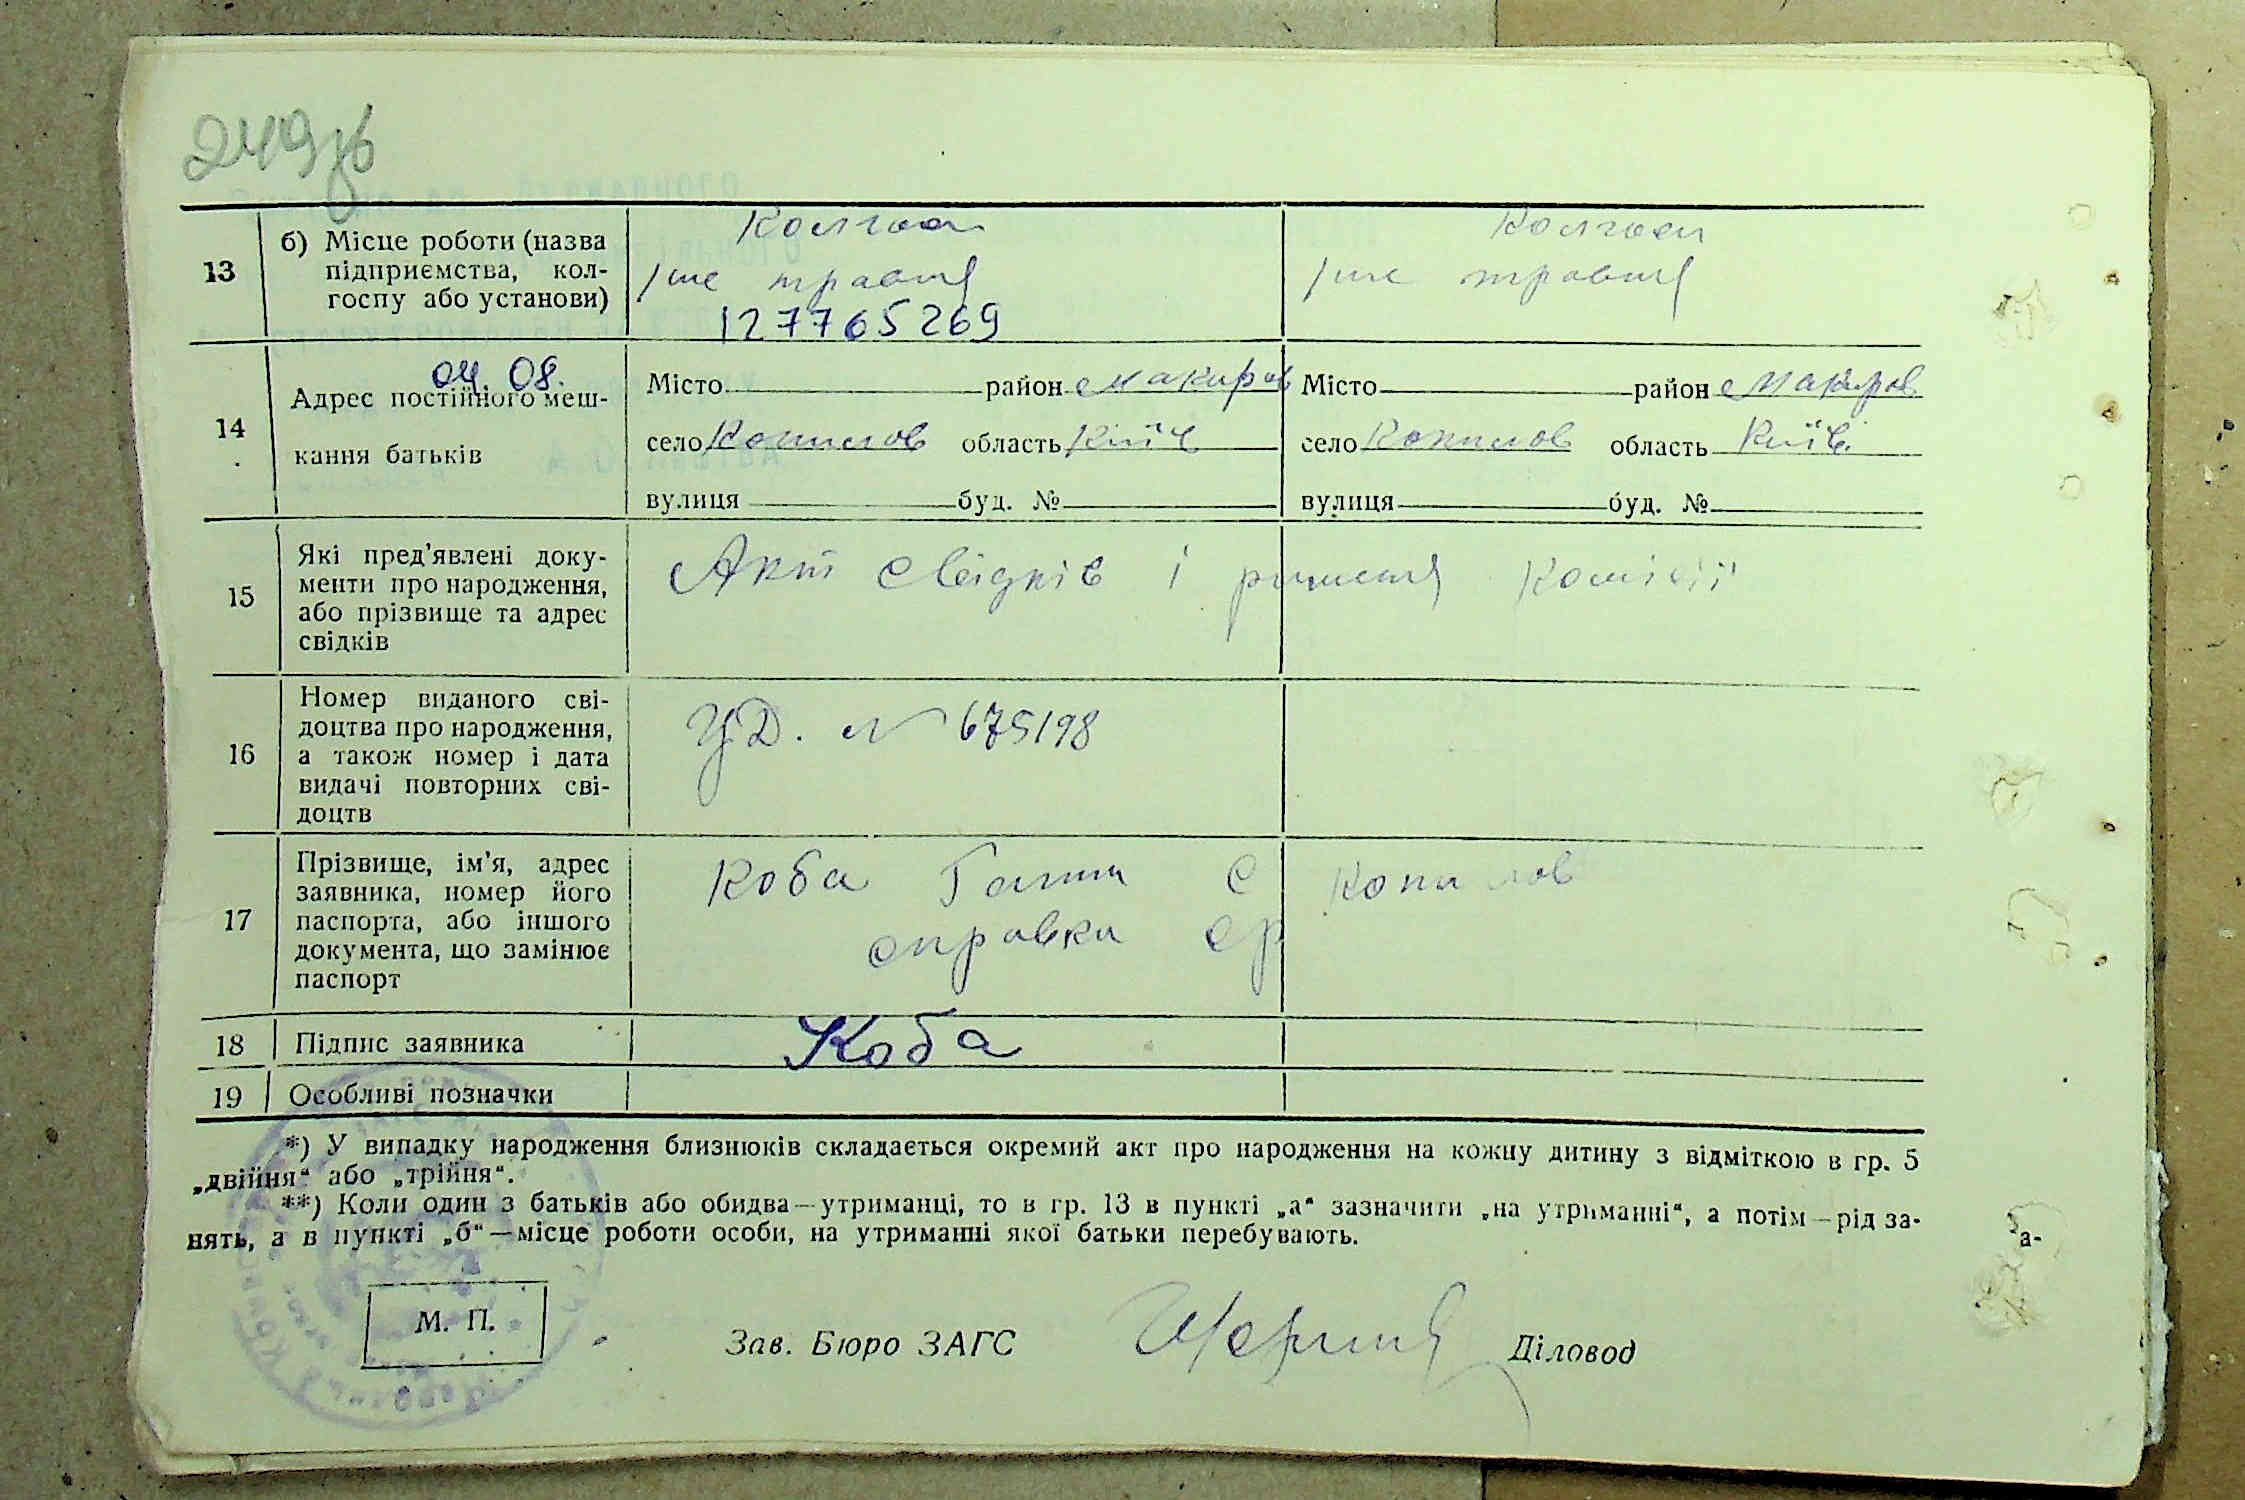 249зв
13 б) Місце роботи (назва Колгосп Колгосп
підприємства, кол- 1ше травня 1ше травня
госпу або установи) 127765269
04. 08.
14 Адрес постійного меш- Місто район Макаров Місто район Макаров
кання батьків село Копилов область Київ село Копилов область Київ
вулиця буд. № вулиця буд. №
15 Які пред'явлені доку-
менти про народження, Акт свідків і рішення комісії
або прізвище та адрес
свідків
16 Номер виданого сві-
доцтва про народження, УД. № 675198
а також номер і дата
видачі повторних сві-
доцтв
17 Прізвище, ім'я, адрес Коба Ганни С Копилов
заявника, номер його
паспорта, або іншого справка ср
документа, що замінює
паспорт
18 Підпис заявника Коба
19 Особливі позначки
*) У випадку народження близнюків складається окремий акт про народження на кожну дитину з відміткою в гр. 5
„двійня“ або „трійня“.
**) Коли один з батьків або обидва—утриманці, то в гр. 13 в пункті „а“ зазначити „на утриманні“, а потім—рід за-
нять, а в пункті „б“—місце роботи особи, на утриманні якої батьки перебувають.
М. П. Зав. Бюро ЗАГС Діловод